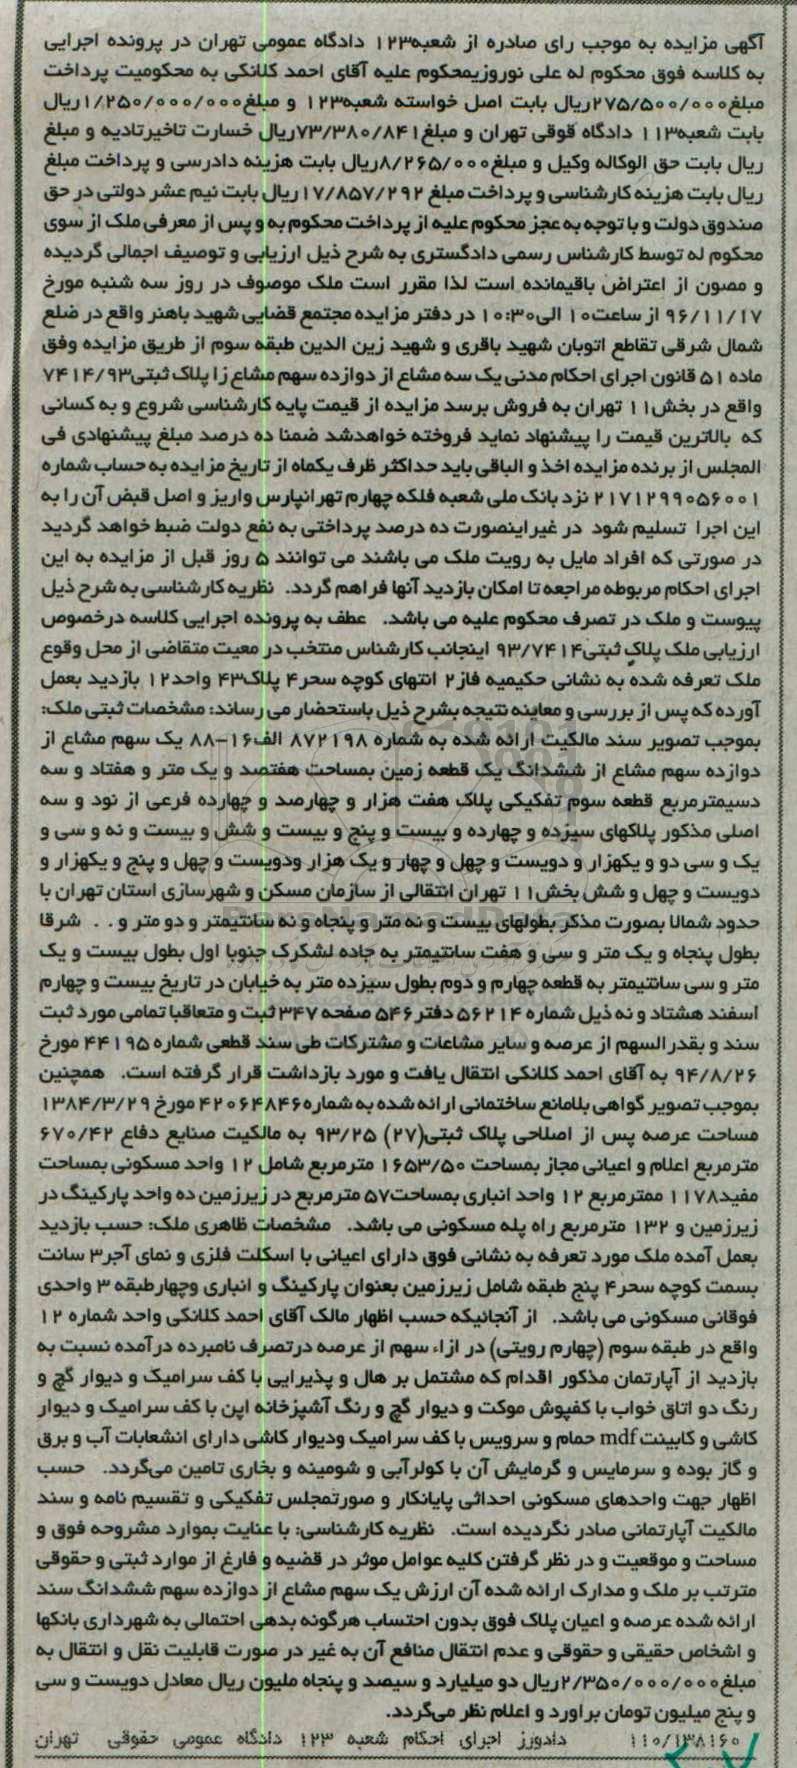 آگهی مزایده به موجب رای صادره از شعبه۱۲۳ دادگاه عمومی تهران در پرونده اجرایی
به کلاسه فوق محکوم له علی نوروزیمحکوم علیه آقای احمد کلانکی به محکومیت پرداخت
مبلغ۲۷۵/۵۰۰/۰۰۰ریال بابت اصل خواسته شعبه۱۲۳ و مبلغ۱/۲۵۰/۰۰۰/۰۰۰ریال
بابت شعبه۱۱۳ دادگاه قوقی تهران و مبلغ۷۳/۳۸۰/۸۴۱ریال خسارت تاخیرتادیه و مبلغ
ریال بابت حق الوکاله وکیل و مبلغ۸/۲۶۵/۰۰۰ریال بابت هزینه دادرسی و پرداخت مبلغ
ریال بابت هزینه کارشناسی و پرداخت مبلغ ۱۷/۸۵۷/۲۹۲ریال بابت نیم عشر دولتی در حق
صندوق دولت و با توجه به عجز محکوم علیه از پرداخت محکوم به و پس از معرفی ملک از سوی
محکوم له توسط کارشناس رسمی دادگستری به شرح ذیل ارزیابی و توصیف اجمالی گردیده
و مصون از اعتراض باقیمانده است لذا مقرر است ملک موصوف در روز سه شنبه مورخ
۹۶/۱۱/۱۷ از ساعت۱۰ الی۱۰:۳۰ در دفتر مزایده مجتمع قضایی شهید باهنر واقع در ضلع
شمال شرقی تقاطع اتوبان شهید باقری و شهید زین الدین طبقه سوم از طریق مزایده وفق
ماده ۵۱ قانون اجرای احکام مدنی یک سه مشاع از دوازده سهم مشاع زا پلاک ثبتی۷۴۱۴/۹۳
واقع در بخش۱۱ تهران به فروش برسد مزایده از قیمت پایه کارشناسی شروع و به کسانی
که بالاترین قیمت را پیشنهاد نماید فروخته خواهدشد ضمنا ده درصد مبلغ پیشنهادی فی
المجلس از برنده مزایده اخذ و الباقی باید حداکثر ظرف یکماه از تاریخ مزایده به حساب شماره
۲۱۷۱۲۹۹۰۵۶۰۰۱ نزد بانک ملی شعبه فلکه چهارم تهرانپارس واریز و اصل قبض آن را به
این اجرا تسلیم شود در غیراینصورت ده درصد پرداختی به نفع دولت ضبط خواهد گردید
در صورتی که افراد مایل به رویت ملک می باشند می توانند ۵ روز قبل از مزایده به این
اجرای احکام مربوطه مراجعه تا امکان بازدید آنها فراهم گردد. نظریه کارشناسی به شرح ذیل
پیوست و ملک در تصرف محکوم علیه می باشد. عطف به پرونده اجرایی کلاسه درخصوص
ارزیابی ملک پلاک ثبتی۹۳/۷۴۱۴ اینجانب کارشناس منتخب در معیت متقاضی از محل وقوع
ملک تعرفه شده به نشانی حکیمیه فاز۲ انتهای کوچه سحر۴ پلاک۴۳ واحد۱۲ بازدید بعمل
آورده که پس از بررسی و معاینه نتیجه بشرح ذیل باستحضار می رساند: مشخصات ثبتی ملک:
بموجب تصویر سند مالکیت ارائه شده به شماره ۸۷۲۱۹۸ الف۱۶–۸۸ یک سهم مشاع از
دوازده سهم مشاع از ششدانگ یک قطعه زمین بمساحت هفتصد و یک متر و هفتاد و سه
دسیمترمربع قطعه سوم تفکیکی پلاک هفت هزار و چهارصد و چهارده فرعی از نود و سه
اصلی مذکور پلاکهای سیزده و چهارده و بیست و پنج و بیست و شش و بیست و نه و سی و
یک و سی دو و یکهزار و دویست و چهل و چهار و یک هزار ودویست و چهل و پنج و یکهزار و
دویست و چهل و شش بخش۱۱ تهران انتقالی از سازمان مسکن و شهرسازی استان تهران با
حدود شمالا بصورت مذکر بطولهای بیست و نه متر و پنجاه و نه سانتیمتر و دو متر و . . شرقا
بطول پنجاه و یک متر و سی و هفت سانتیمتر به جاده لشکرک جنوبا اول بطول بیست و یک
متر و سی سانتیمتر به قطعه چهارم و دوم بطول سیزده متر به خیابان در تاریخ بیست و چهارم
اسفند هشتاد و نه ذیل شماره ۵۶۲۱۴ دفتر۵۴۶ صفحه ۳۴۷ ثبت و متعاقبا تمامی مورد ثبت
سند و بقدرالسهم از عرصه و سایر مشاعات و مشترکات طی سند قطعی شماره ۴۴۱۹۵ مورخ
۹۴/۸/۲۶ به آقای احمد کلانکی انتقال یافت و مورد بازداشت قرار گرفته است. همچنین
بموجب تصویر گواهی بلامانع ساختمانی ارائه شده به شماره۴۲۰۶۴۸۴۶ مورخ ۱۳۸۴/۳/۲۹
مساحت عرصه پس از اصلاحی پلاک ثبتی(۲۷) ۹۳/۲۵ به مالکیت صنایع دفاع ۶۷۰/۴۲
مترمربع اعلام و اعیانی مجاز بمساحت ۱۶۵۳/۵۰ مترمربع شامل ۱۲ واحد مسکونی بمساحت
مفید۱۱۷۸ ممترمربع ۱۲ واحد انباری بمساحت۵۷ مترمربع در زیرزمین ده واحد پارکینگ در
زیرزمین و ۱۳۲ مترمربع راه پله مسکونی می باشد. مشخصات ظاهری ملک: حسب بازدید
بعمل آمده ملک مورد تعرفه به نشانی فوق دارای اعیانی با اسکلت فلزی و نمای آجر۳ سانت
بسمت کوچه سحر۴ پنج طبقه شامل زیرزمین بعنوان پارکینگ و انباری وچهارطبقه ۳ واحدی
فوقانی مسکونی می باشد. از آنجائیکه حسب اظهار مالک آقای احمد کلانکی واحد شماره ۱۲
واقع در طبقه سوم (چهارم رویتی) در ازاء سهم از عرصه درتصرف نامبرده درآمده نسبت به
بازدید از آپارتمان مذکور اقدام که مشتمل بر هال و پذیرایی با کف سرامیک و دیوار گچ و
رنگ دو اتاق خواب با کفپوش موکت و دیوار گچ و رنگ آشپزخانه اپن با کف سرامیک و دیوار
کاشی و کابینت mdf حمام و سرویس با کف سرامیک ودیوار کاشی دارای انشعابات آب و برق
و گاز بوده و سرمایس و گرمایش آن با کولرآبی و شومینه و بخاری تامین می‌گردد. حسب
اظهار جهت واحدهای مسکونی احداثی پایانکار و صورتمجلس تفکیکی و تقسیم نامه و سند
مالکیت آپارتمانی صادر نگردیده است. نظریه کارشناسی: با عنایت بموارد مشروحه فوق و
مساحت و موقعیت و در نظر گرفتن کلیه عوامل موثر در قضیه و فارغ از موارد ثبتی و حقوقی
مترتب بر ملک و مدارک ارائه شده آن ارزش یک سهم مشاع از دوازده سهم ششدانگ سند
ارائه شده عرصه و اعیان پلاک فوق بدون احتساب هرگونه بدهی احتمالی به شهرداری بانکها
و اشخاص حقیقی و حقوقی و عدم انتقال منافع آن به غیر در صورت قابلیت نقل و انتقال به
مبلغ۲/۳۵۰/۰۰۰/۰۰۰ریال دو میلیارد و سیصد و پنجاه ملیون ریال معادل دویست و سی
و پنج میلیون تومان براورد و اعلام نظر می‌گردد.
۱۱۰/۱۳۸۱۶۰ دادورز اجرای احکام شعبه ۱۲۳ دادگاه عمومی حقوقی تهران